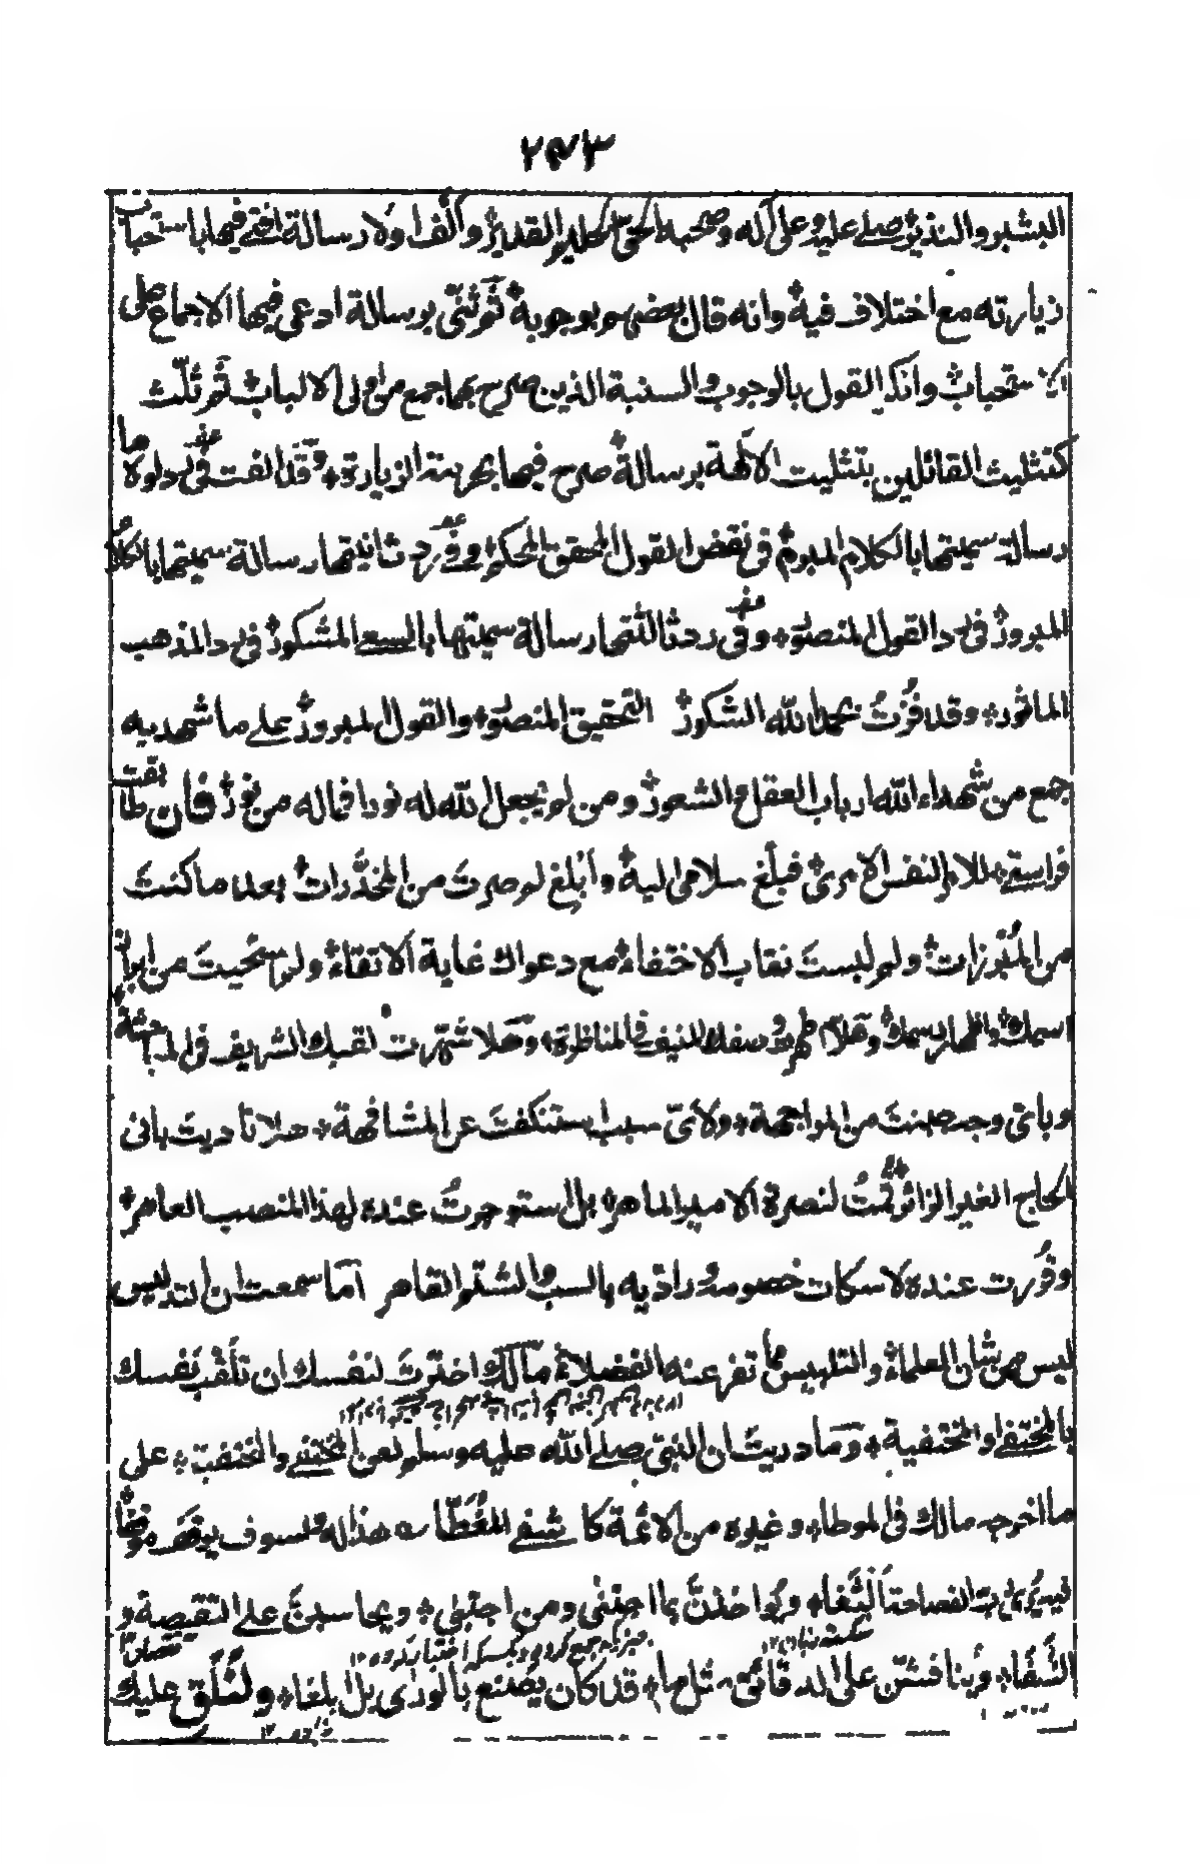 ۲۴۳
البشير والنذير صلے عليه وعلى آله وصحبه الحق الحليم القدير وألف اولا رسالة افتے فيها باستحباب
زيارته مع اختلاف فيه وانه قال بعضهم بوجوبه ثم ثنّى برسالة ادعى فيها الاجماع على
الاستحباب وانكر القول بالوجوب والسنية الذين صرح بهما جمع من اولى الالباب ثم ثلّث
كتثليث القائلين بتثليث الآلهة برسالة صرح فيها بحرمة الزيارة وقد الفت فى رد اولاها
رسالة سميتها بالكلام المبرم فى نقض القول المحقق المحكم وفى رد ثانيتها رسالة سميتها بالكلام
المبرور فى رد القول المنصور وفى رد ثالثتها رسالة سميتها بالسعے المشكور فى رد المذهب
الماثور وقد فزت بحمد الله الشكور التحقيق المنصور والقول المبرور علے ما شهد به
جمع من شهداء الله ارباب العقل والشعور ومن لم يجعل الله له نورا فماله من نور فان طابقت
فراستے للامر النفس الامرى فبلغ سلامى اليه وأبلغ لم صرت من المخدّرات بعد ما كنت
من المبرزات ولم لبست نقاب الاختفاء مع دعواك غاية الاتقاء ولم استحييت من ابراز
اسمك واظهار رسمك وهلا ظهر وصفك المنيف فى المناظرة وهلا شهّرت لقبك الشريف فى المباحثة
وباىّ وجه صنت من المواجهة ولاىّ سبب استنكفت عن المشافهة هلا ناديت بانى
الحاج الغير الزائر قمت لنصرة الامير الماهر بل استوجرت عنده لهذا المنصب العاهر
وقررت عنده لاسكات خصومه ورادّيه بالسب والشتم القاهر أما سمعت ان التدليس
ليس من شان العلماء والتلبيس مما تفر عنه الفضلاء مالك اخترت لنفسك ان تلقب نفسك
بالمختفے والمختفية وما دريت ان النبى صلے الله عليه وسلم لعن المختفے والمختفية على
ما اخرجه مالك فى الموطا وغيره من الائمة كاشفے الغُطّا هذا له ولسوف
بما اجتنى ومن اجتبى ويحاسبن علے النقيصة و
قد كان يصنع بالورى بل ابلغاء عليك